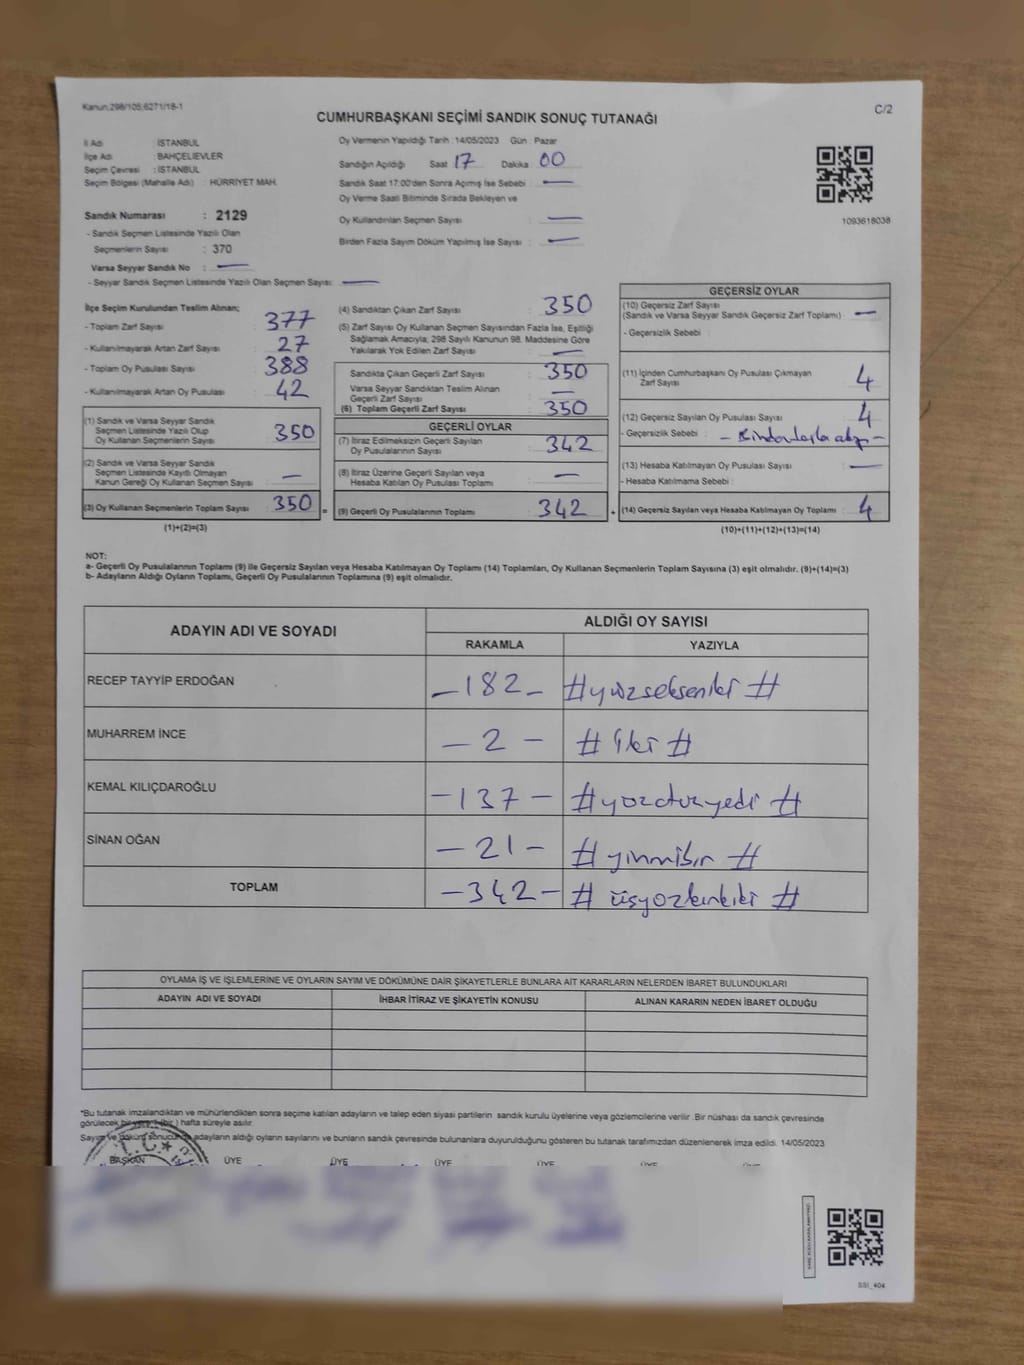 Kanun.298/105;6271/18-1
C/2
CUMHURBAŞKANI SEÇİMİ SANDIK SONUÇ TUTANAĞI
İl Adı : İSTANBUL
İlçe Adı : BAHÇELİEVLER
Seçim Çevresi : İSTANBUL
Seçim Bölgesi (Mahalle Adı) : HÜRRİYET MAH.
Sandık Numarası : 2129
- Sandık Seçmen Listesinde Yazılı Olan
Seçmenlerin Sayısı : 370
Varsa Seyyar Sandık No : —
- Seyyar Sandık Seçmen Listesinde Yazılı Olan Seçmen Sayısı: —
Oy Vermenin Yapıldığı Tarih :14/05/2023 Gün : Pazar
Sandığın Açıldığı Saat 17 Dakika 00
Sandık Saat 17:00'den Sonra Açılmış İse Sebebi : —
Oy Verme Saati Bitiminde Sırada Bekleyen ve
Oy Kullandırılan Seçmen Sayısı : —
Birden Fazla Sayım Döküm Yapılmış İse Sayısı : —
1093618038
İlçe Seçim Kurulundan Teslim Alınan;
- Toplam Zarf Sayısı : 377
- Kullanılmayarak Artan Zarf Sayısı : 27
- Toplam Oy Pusulası Sayısı : 388
- Kullanılmayarak Artan Oy Pusulası : 42
(1) Sandık ve Varsa Seyyar Sandık
Seçmen Listesinde Yazılı Olup
Oy Kullanan Seçmenlerin Sayısı : 350
(2) Sandık ve Varsa Seyyar Sandık
Seçmen Listesinde Kayıtlı Olmayan
Kanun Gereği Oy Kullanan Seçmen Sayısı : —
(3) Oy Kullanan Seçmenlerin Toplam Sayısı : 350 =
(1)+(2)=(3)
(4) Sandıktan Çıkan Zarf Sayısı : 350
(5) Zarf Sayısı Oy Kullanan Seçmen Sayısından Fazla İse, Eşitliği
Sağlamak Amacıyla, 298 Sayılı Kanunun 98. Maddesine Göre
Yakılarak Yok Edilen Zarf Sayısı : —
Sandıkta Çıkan Geçerli Zarf Sayısı : 350
Varsa Seyyar Sandıktan Teslim Alınan
Geçerli Zarf Sayısı : —
(6) Toplam Geçerli Zarf Sayısı : 350
GEÇERLİ OYLAR
(7) İtiraz Edilmeksizin Geçerli Sayılan
Oy Pusulalarının Sayısı : 342
(8) İtiraz Üzerine Geçerli Sayılan veya
Hesaba Katılan Oy Pusulası Toplamı : —
(9) Geçerli Oy Pusulalarının Toplamı : 342 +
GEÇERSİZ OYLAR
(10) Geçersiz Zarf Sayısı
(Sandık ve Varsa Seyyar Sandık Geçersiz Zarf Toplamı) : —
- Geçersizlik Sebebi :
(11) İçinden Cumhurbaşkanı Oy Pusulası Çıkmayan
Zarf Sayısı : 4
(12) Geçersiz Sayılan Oy Pusulası Sayısı : 4
- Geçersizlik Sebebi :
(13) Hesaba Katılmayan Oy Pusulası Sayısı : —
- Hesaba Katılmama Sebebi :
(14) Geçersiz Sayılan veya Hesaba Katılmayan Oy Toplamı : 4
(10)+(11)+(12)+(13)=(14)
NOT:
a- Geçerli Oy Pusulalarının Toplamı (9) ile Geçersiz Sayılan veya Hesaba Katılmayan Oy Toplamı (14) Toplamları, Oy Kullanan Seçmenlerin Toplam Sayısına (3) eşit olmalıdır. (9)+(14)=(3)
b- Adayların Aldığı Oyların Toplamı, Geçerli Oy Pusulalarının Toplamına (9) eşit olmalıdır.
ADAYIN ADI VE SOYADI
ALDIĞI OY SAYISI
RAKAMLA YAZIYLA
RECEP TAYYİP ERDOĞAN –182– #yüzsekseniki #
MUHARREM İNCE – 2 – # iki #
KEMAL KILIÇDAROĞLU –137– #yüzotuzyedi #
SİNAN OĞAN –21– # yirmibir #
TOPLAM –342– # üçyüzkırkiki #
OYLAMA İŞ VE İŞLEMLERİNE VE OYLARIN SAYIM VE DÖKÜMÜNE DAİR ŞİKAYETLERLE BUNLARA AİT KARARLARIN NELERDEN İBARET BULUNDUKLARI
ADAYIN ADI VE SOYADI İHBAR İTİRAZ VE ŞİKAYETİN KONUSU ALINAN KARARIN NEDEN İBARET OLDUĞU
*Bu tutanak imzalandıktan ve mühürlendikten sonra seçime katılan adayların ve talep eden siyasi partilerin sandık kurulu üyelerine veya gözlemcilerine verilir .Bir nüshası da sandık çevresinde
görülecek bir yere 1 (bir ) hafta süreyle asılır.
Sayım ve döküm sonucunda adayların aldığı oyların sayılarını ve bunların sandık çevresinde bulunanlara duyurulduğunu gösteren bu tutanak tarafımızdan düzenlenerek imza edildi. 14/05/2023
T.C.
BAŞKAN ÜYE ÜYE ÜYE ÜYE ÜYE ÜYE
SSI_404